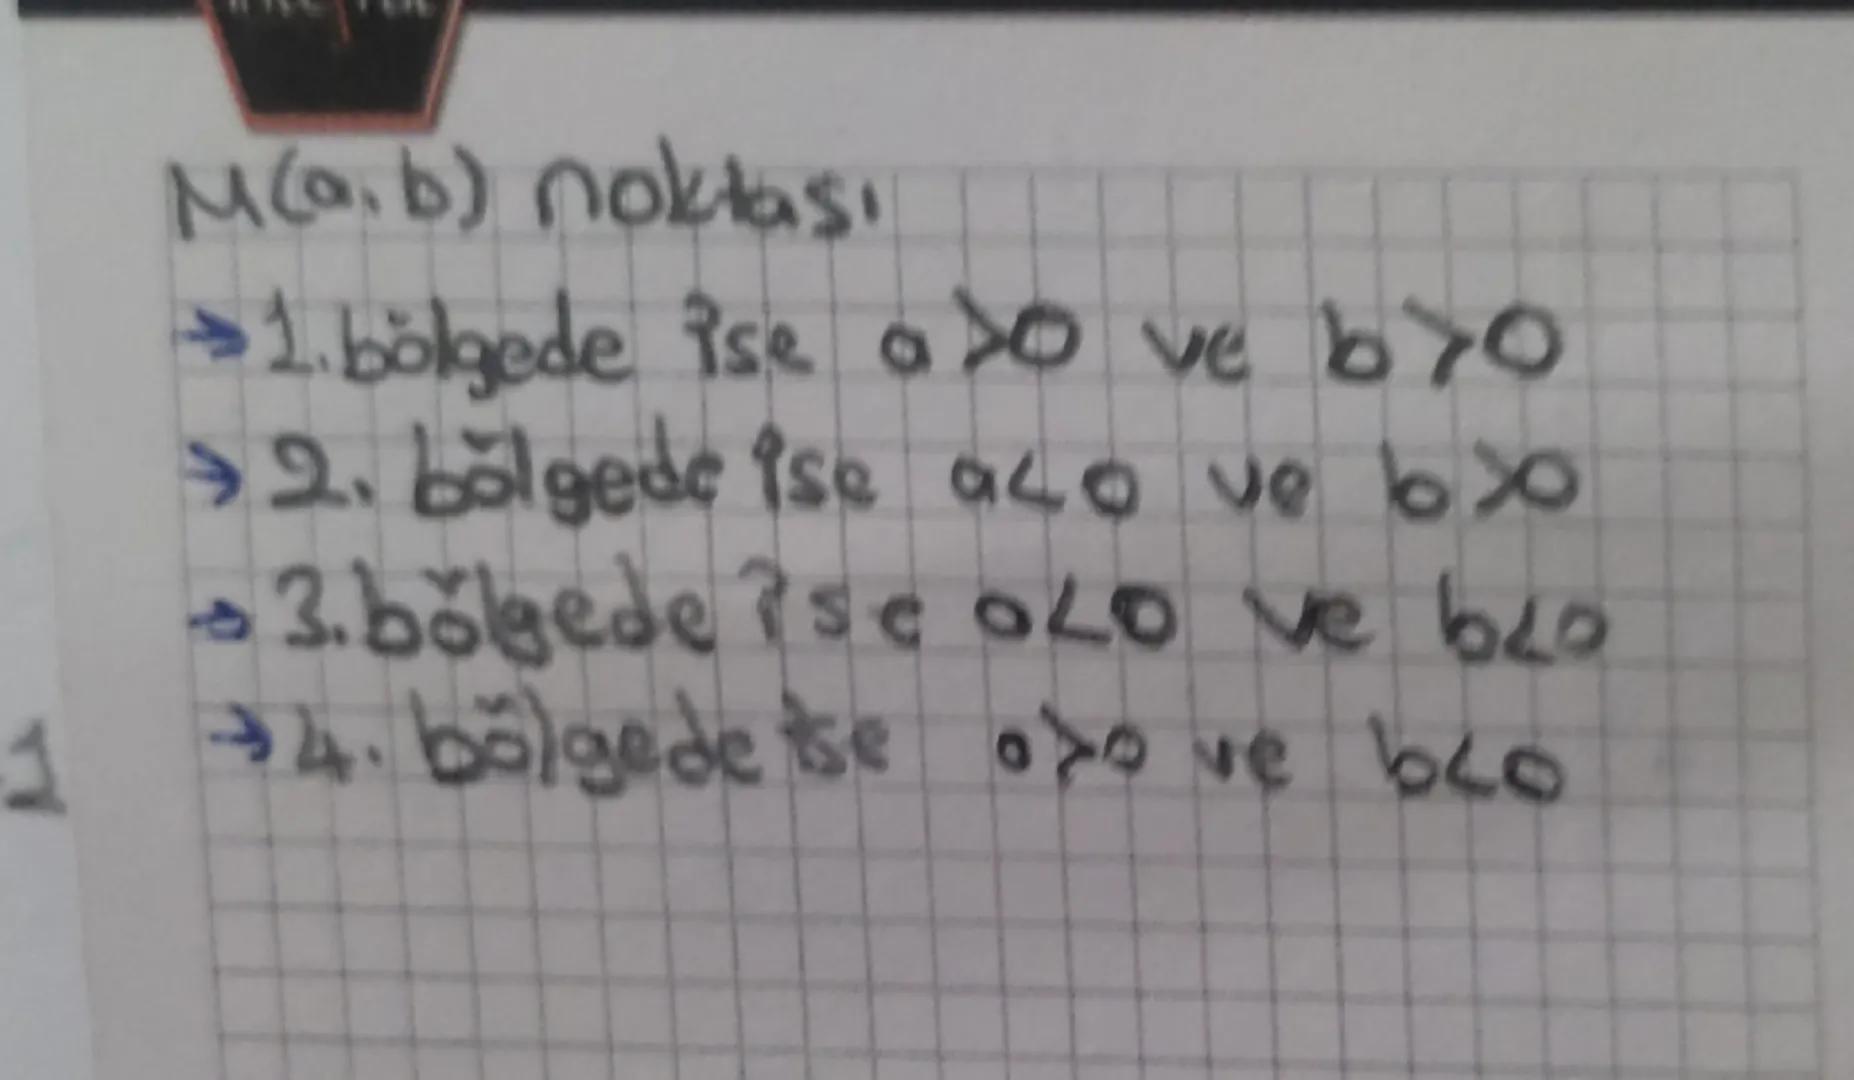 M(a.b) noktası
→ 1. bölgede ise a>0 ve b>0
→ 2. bölgede ise a<0 ve b>0
→ 3. bölgede ise a<0 ve b<0
→ 4. bölgede ise a>0 ve b<0
1